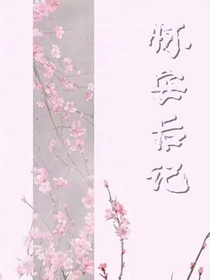 怀安后记